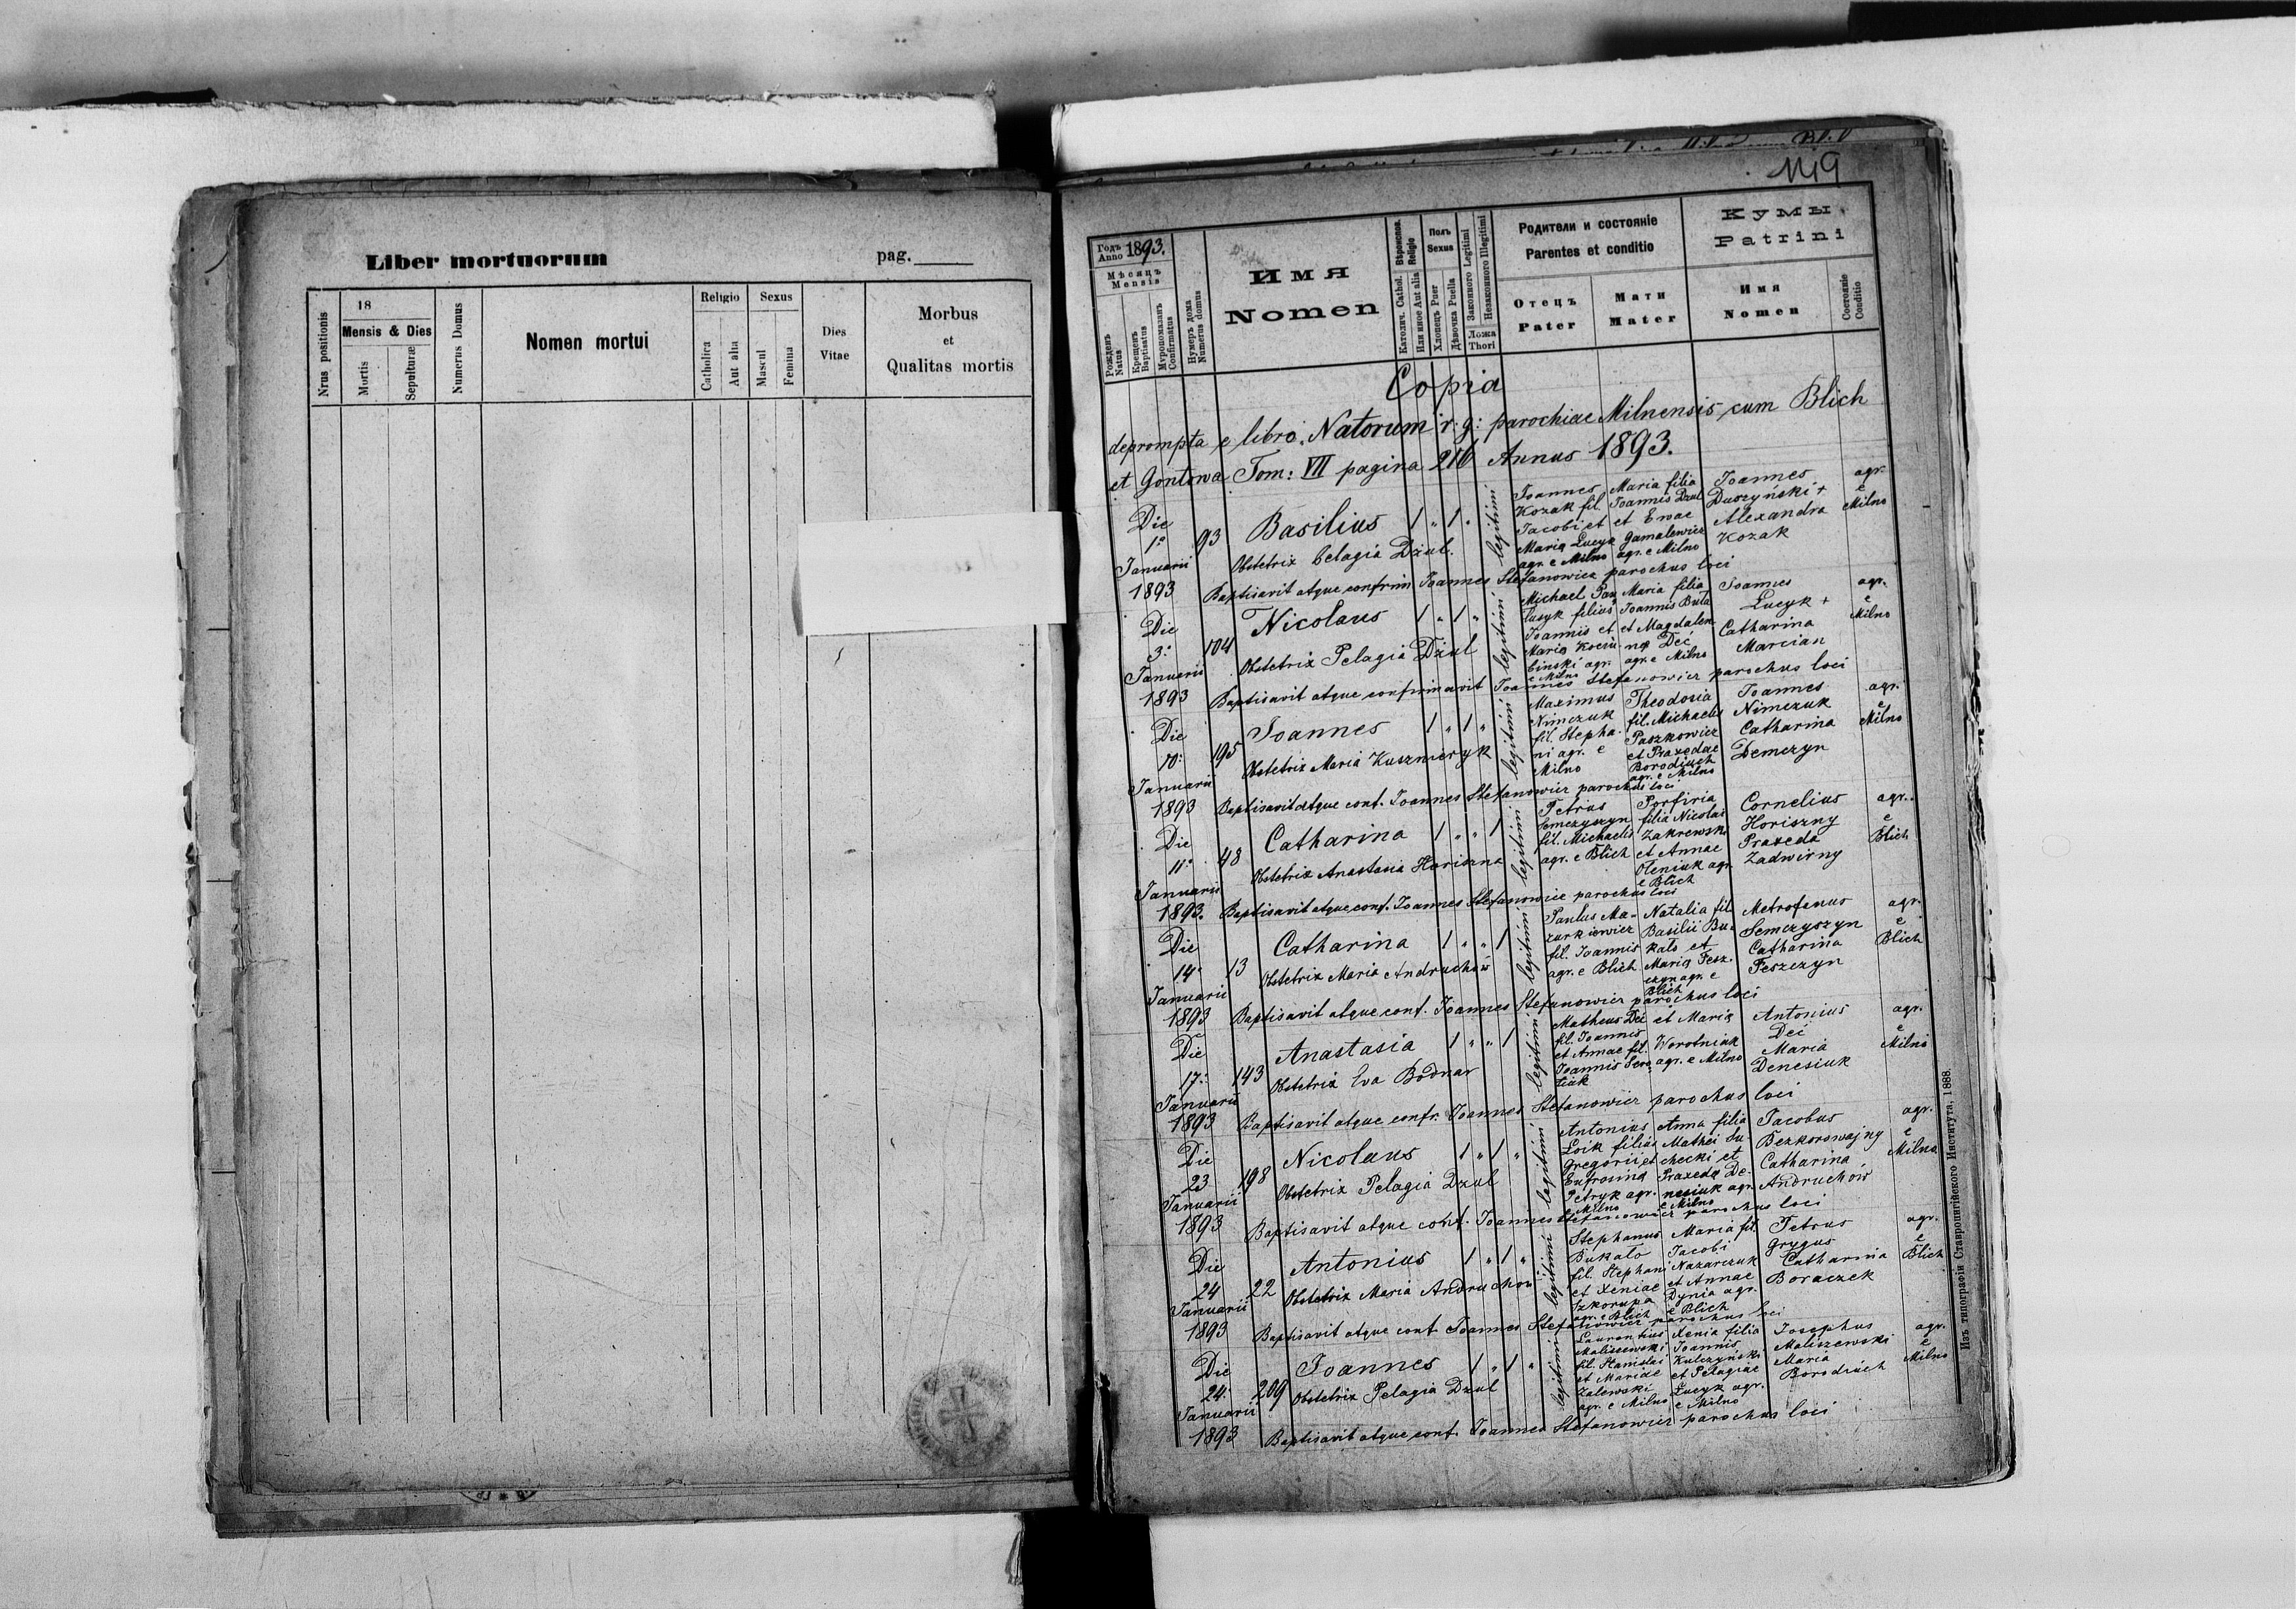 Liber mortuorum
pag.
Nrus positionis
18
Mensis & Dies
Mortis
Sepulturæ
Numerus Domus
Nomen mortui
Religio
Catholica
Aut alta
Sexus
Mascul
Femina
Dies
Vitae
Morbus
et
Qualitas mortis
119
Годъ
Anno 1893.
Мѣсяцъ
Mensis
Рожденъ
Natus
Крещенъ
Baptisatus
Мѵропомазанъ
Confirmatus
Нумеръ дома
Numerus domus
Имя
Nomen
Вѣроиспов.
Religio
Католич. Cathol.
Или иное Aut alia
Полъ
Sexus
Хлопецъ Puer
Дѣвочка Puella
Законного Legitimi
Незаконного Illegitimi
Ложа
Thori
Родители и состоянiе
Parentes et conditio
Отецъ
Pater
Мати
Mater
Кумы
Patrini
Имя
Nomen
Состоянiе
Conditio
Copia
deprompta e libro Natorum r. g: parochiae Milnensis cum Blich
et Gontowa Tom: VII pagina 216 Annus 1893.
Die
1°
Januarii
1893
93
Basilius 1 " 1 "
Obstetrix Pelagia Dżul.
legitimi
Joannes
Kozak fil.
Jacobi et
Maria Łucyk
agr. e Milno
Maria filia
Joannis Dzul
et Evae
Gamalewicz
agr. e Milno
Joannes
Duszyński +
Alexandra
Kozak
agr.
e
Milno
Baptisavit atque confrim Joannes Stefanowicz parochus loci
Die
3:
Januarii
1893
104
Nicolaus 1 " 1 "
Obstetrix Pelagia Dżul
legitimi
Michael Pau
lusyk filius
Joannis et
Maria Kociu-
binski agr.
e Milno
Maria filia
Joannis Buła
et Magdale
na Deć
agr. e Milno
Joannes
Łucyk +
Catharina
Marcian
agr.
e
Milno
Baptisavit atque confirmavit Joannes Stefanowicz parochus loci
Die
10:
Januarii
1893
195
Joannes 1 " 1 "
Obstetrix Maria Kuszmeryk
legitimi
Maximus
Nimczuk
fil. Stepha-
ni agr. e
Milno
Theodosia
fil. Michaelis
Paszkowicz
et Praxedae
Borodiuch
agr. e Milno
Joannes
Nimczuk
Catharina
Demczyn
agr.
e
Milno
Baptisavit atque conf. Joannes Stefanowicz parochus loci
Die
11°
Januarii
1893.
48
Catharina 1 " " 1
Obstetrix Anastasia Horiszna
legitimi
Petrus
Semczyszyn
fil. Michaelis
agr. e Blich
Porfiria
filia Nicolai
Zakrewski
et Annae
Oleniuk agr.
e Blich
Cornelius
Horiszny
Praxeda
Zadwirny
agr.
e
Blich
Baptisavit atque conf. Joannes Stefanowicz parochus loci
Die
14°
Januarii
1893
13
Catharina 1 " " 1
Obstetrix Maria Andruchów
legitimi
Paulus Ma-
zurkiewicz
fil. Joannis
agr. e Blich
Natalia fil.
Basilii Bu-
kato et
Maria Fesz-
czyn agr. e
Blich
Metrofanus
Semczyszyn
Catharina
Feszczyn
agr.
e
Blich
Baptisavit atque conf. Joannes Stefanowicz parochus loci
Die
17:
Januarii
1893
143
Anastasia 1 " " 1
Obstetrix Eva Bodnar
legitimi
Matheus Deć
fil. Joannis
et Annae fil.
Joannis Sere
et Maria
Worotniak
agr. e Milno
Antonius
Deć
Maria
Denesiuk
agr.
e
Milno
Baptisavit atque confr. Joannes Stefanowicz parochus loci
Die
23
Januarii
1893
198
Nicolaus 1 " 1 "
Obstetrix Pelagia Dzul
legitimi
Antonius
Loik filius
Gregorii et
Eufrosina
Petryk agr.
e Milno
Anna filia
Mathei Su
checki et
Praxeda De-
nesiuk agr.
e Milno
Jacobus
Bezkorowajny
Catharina
Andruchów
agr.
e
Milno
Baptisavit atque conf. Joannes Stefanowicz parochus loci
Die
24
Januarii
1893
22
Antonius 1 " 1 "
Obstetrix Maria Andruchow
legitimi
Stephanus
Bukato
fil. Stephani
et Xeniae
Szkorupa
agr. e Blich
Maria fil.
Jacobi
Nazarczuk
et Annae
Dynia agr.
e Blich
Petrus
Grygus
Catharina
Boraczek
agr.
e
Blich
Baptisavit atque conf. Joannes Stefanowicz parochus loci
Die
24:
Januarii
1893
209
Joannes 1 " 1 "
Obstetrix Pelagia Dzul
legitimi
Laurentius
Maliszewski
fil. Stanislai
et Mariae
Zalewski
agr. e Milno
Xenia filia
Joannis
Kulczyński
et Pelagiae
Łucyk agr.
e Milno
Josephus
Maliszewski
Maria
Borodiuch
agr.
e
Milno
Baptisavit atque conf. Joannes Stefanowicz parochus loci
Изъ типографiи Ставропигiйского Института, 1888.